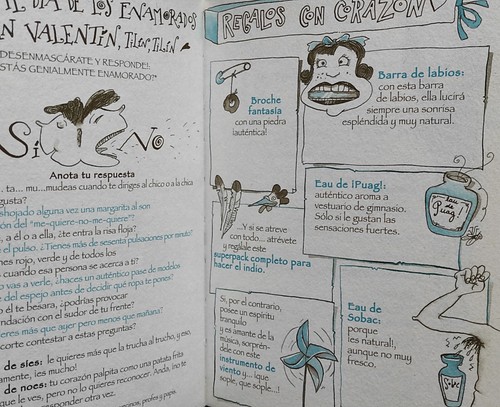 EL DÍA DE LOS ENAMORADOS
SAN VALENTÍN, TILÍN, TILÍN
¡DESENMASCÁRATE Y RESPONDE!
¿ESTÁS GENIALMENTE ENAMORADO?*
SÍ NO
Anota tu respuesta
... ta... mu...mudeas cuando te diriges al chico o a la chica
gusta?
shojado alguna vez una margarita al son
ón del "me-quiere-no-me-quiere"?
, a él o a ella, ¿te entra la risa floja?
el pulso. ¿Tienes más de sesenta pulsaciones por minuto?
nes rojo, verde y de todos los
cuando esa persona se acerca a ti?
o vas a verle, ¿haces un auténtico pase de modelos
e del espejo antes de decidir qué ropa te pones?
o él te besara, ¿podrías provocar
ndación con el sudor de tu frente?
ieres más que ayer pero menos que mañana?
corte contestar a estas preguntas?
de síes: le quieres más que la trucha al trucho, y eso,
amente, ¡es mucho!
de noes: tu corazón palpita como una patata frita
que le ves, pero no lo quieres reconocer. Anda, ¡no te
responder otra vez.
vecinos, profes y papás.
REGALOS CON CORAZÓN
Broche
fantasía
con una piedra
¡auténtica!
Barra de labios:
con esta barra
de labios, ella lucirá
siempre una sonrisa
espléndida y muy natural.
...Y si se atreve
con todo... atrévete
y regálale este
superpack completo para
hacer el indio.
Eau de ¡Puag!:
auténtico aroma a
vestuario de gimnasio.
Sólo si le gustan las
sensaciones fuertes.
Eau de
Puag!
Si, por el contrario,
posee un espíritu
tranquilo
y es amante de la
música, sorprén-
dele con este
instrumento de
viento y... ¡que
sople, que sople...!
Eau de
Sobac:
porque
¡es natural!,
aunque no muy
fresco.
Sobac